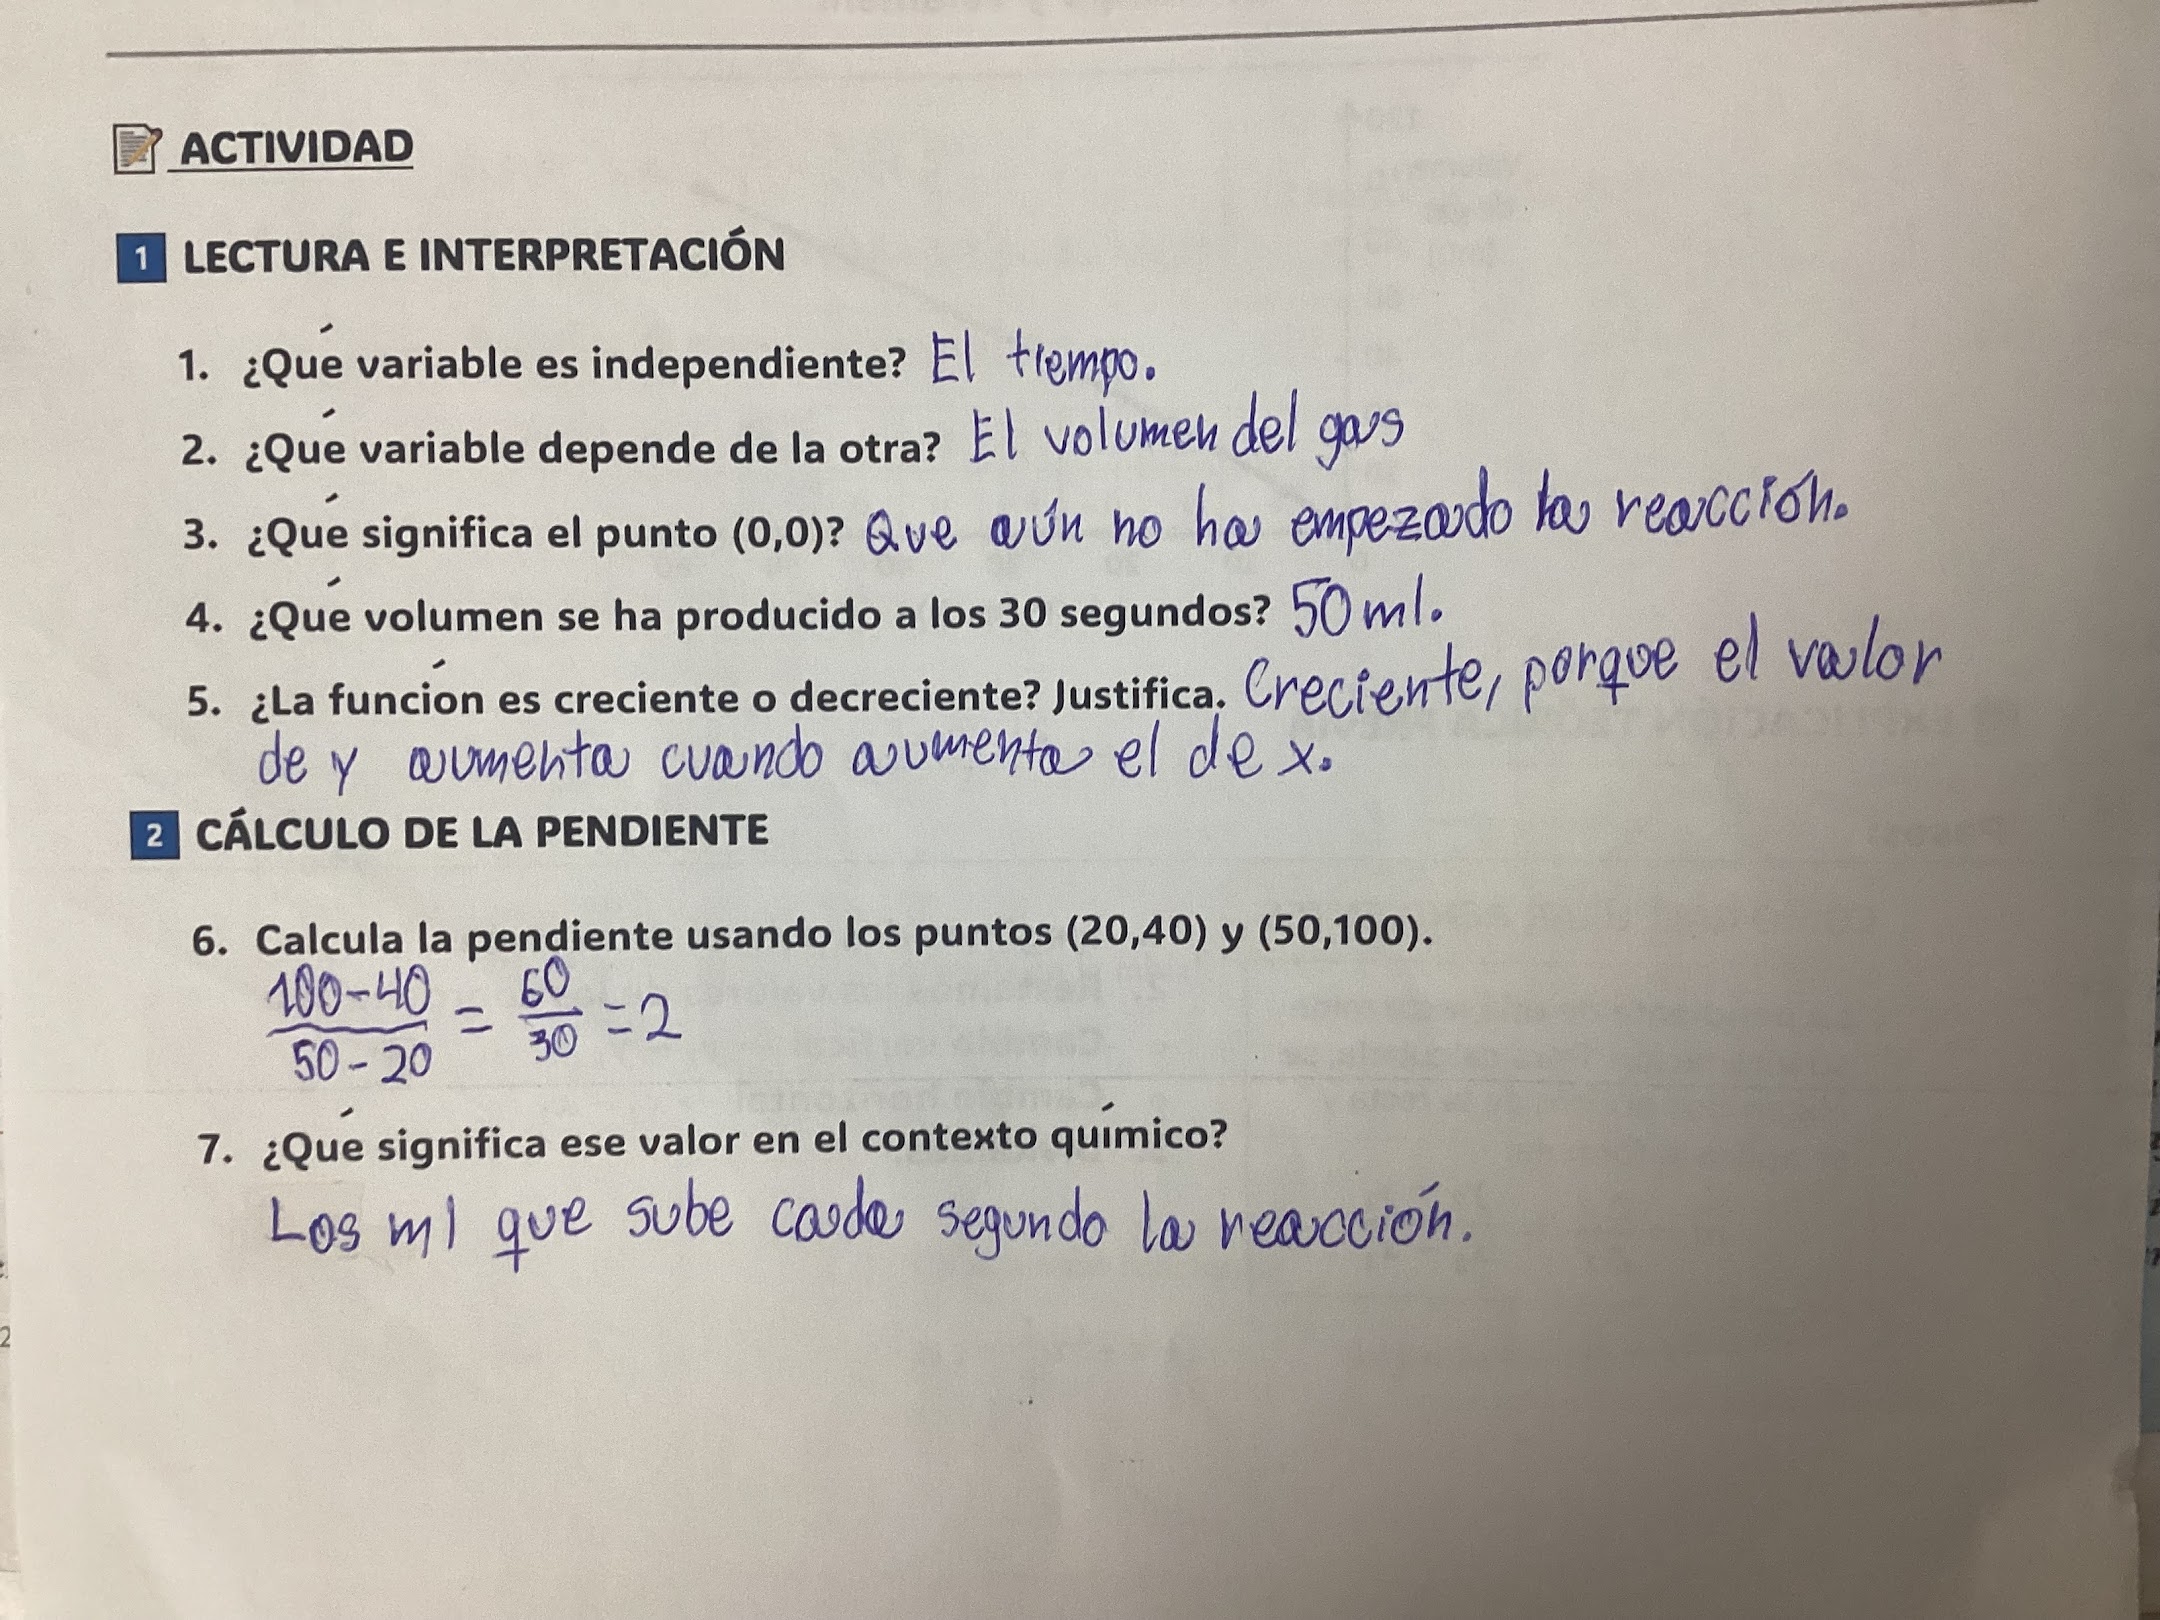 ACTIVIDAD
1 LECTURA E INTERPRETACIÓN
1. ¿Qué variable es independiente? El tiempo.
2. ¿Qué variable depende de la otra? El volumen del gas
3. ¿Qué significa el punto (0,0)? Que aún no ha empezado la reacción.
4. ¿Qué volumen se ha producido a los 30 segundos? 50 ml.
5. ¿La función es creciente o decreciente? Justifica. Creciente, porque el valor
de y aumenta cuando aumenta el de x.
2 CÁLCULO DE LA PENDIENTE
6. Calcula la pendiente usando los puntos (20,40) y (50,100).
100-40 / 50-20 = 60 / 30 = 2
7. ¿Qué significa ese valor en el contexto químico?
Los ml que sube cada segundo la reacción.